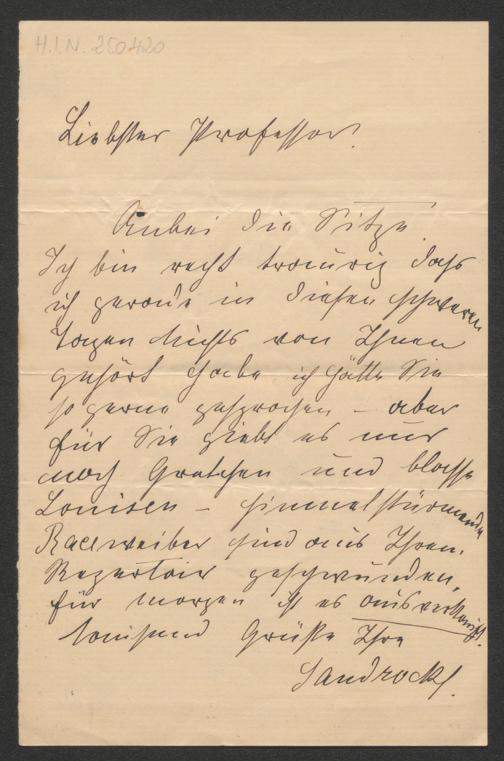 H.I.N. 250420
Liebster Professor!
Anbei die Sitze.
Ich bin recht traurig dass
ich gerade in diesen schweren
Tagen Nichts von Ihnen
gehört habe ich hätte Sie
so gerne gesprochen – aber
für Sie giebt es nur
noch Gretchen und blosse
Louisen – himmelstürmende
Raceweiber sind aus Ihrem
Repertoir geschwunden,
für morgen ist es ausverkauft.
tausend Grüße Ihre
Sandrock.